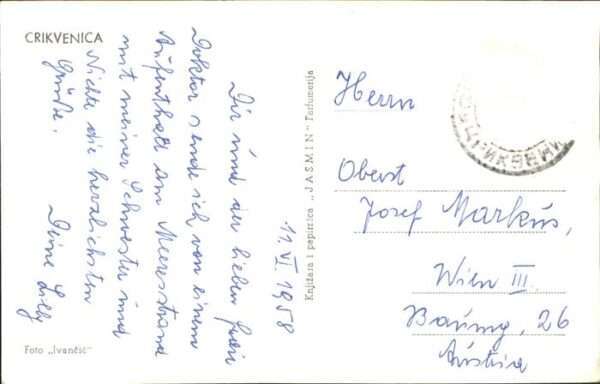 CRIKVENICA
11. VI. 1958
Dir und der lieben Frau
Doktor sende ich von einem
Aufenthalt am Meeresstrand
mit meiner Schwester und
Nichte die herzlichsten
Grüße.
Deine Lilly
Foto „Ivančić"
Knjižara i papirnica „JASMIN" Parfumerija
Herrn
Oberst
Josef Markus,
Wien III.
Baumg. 26
Austria